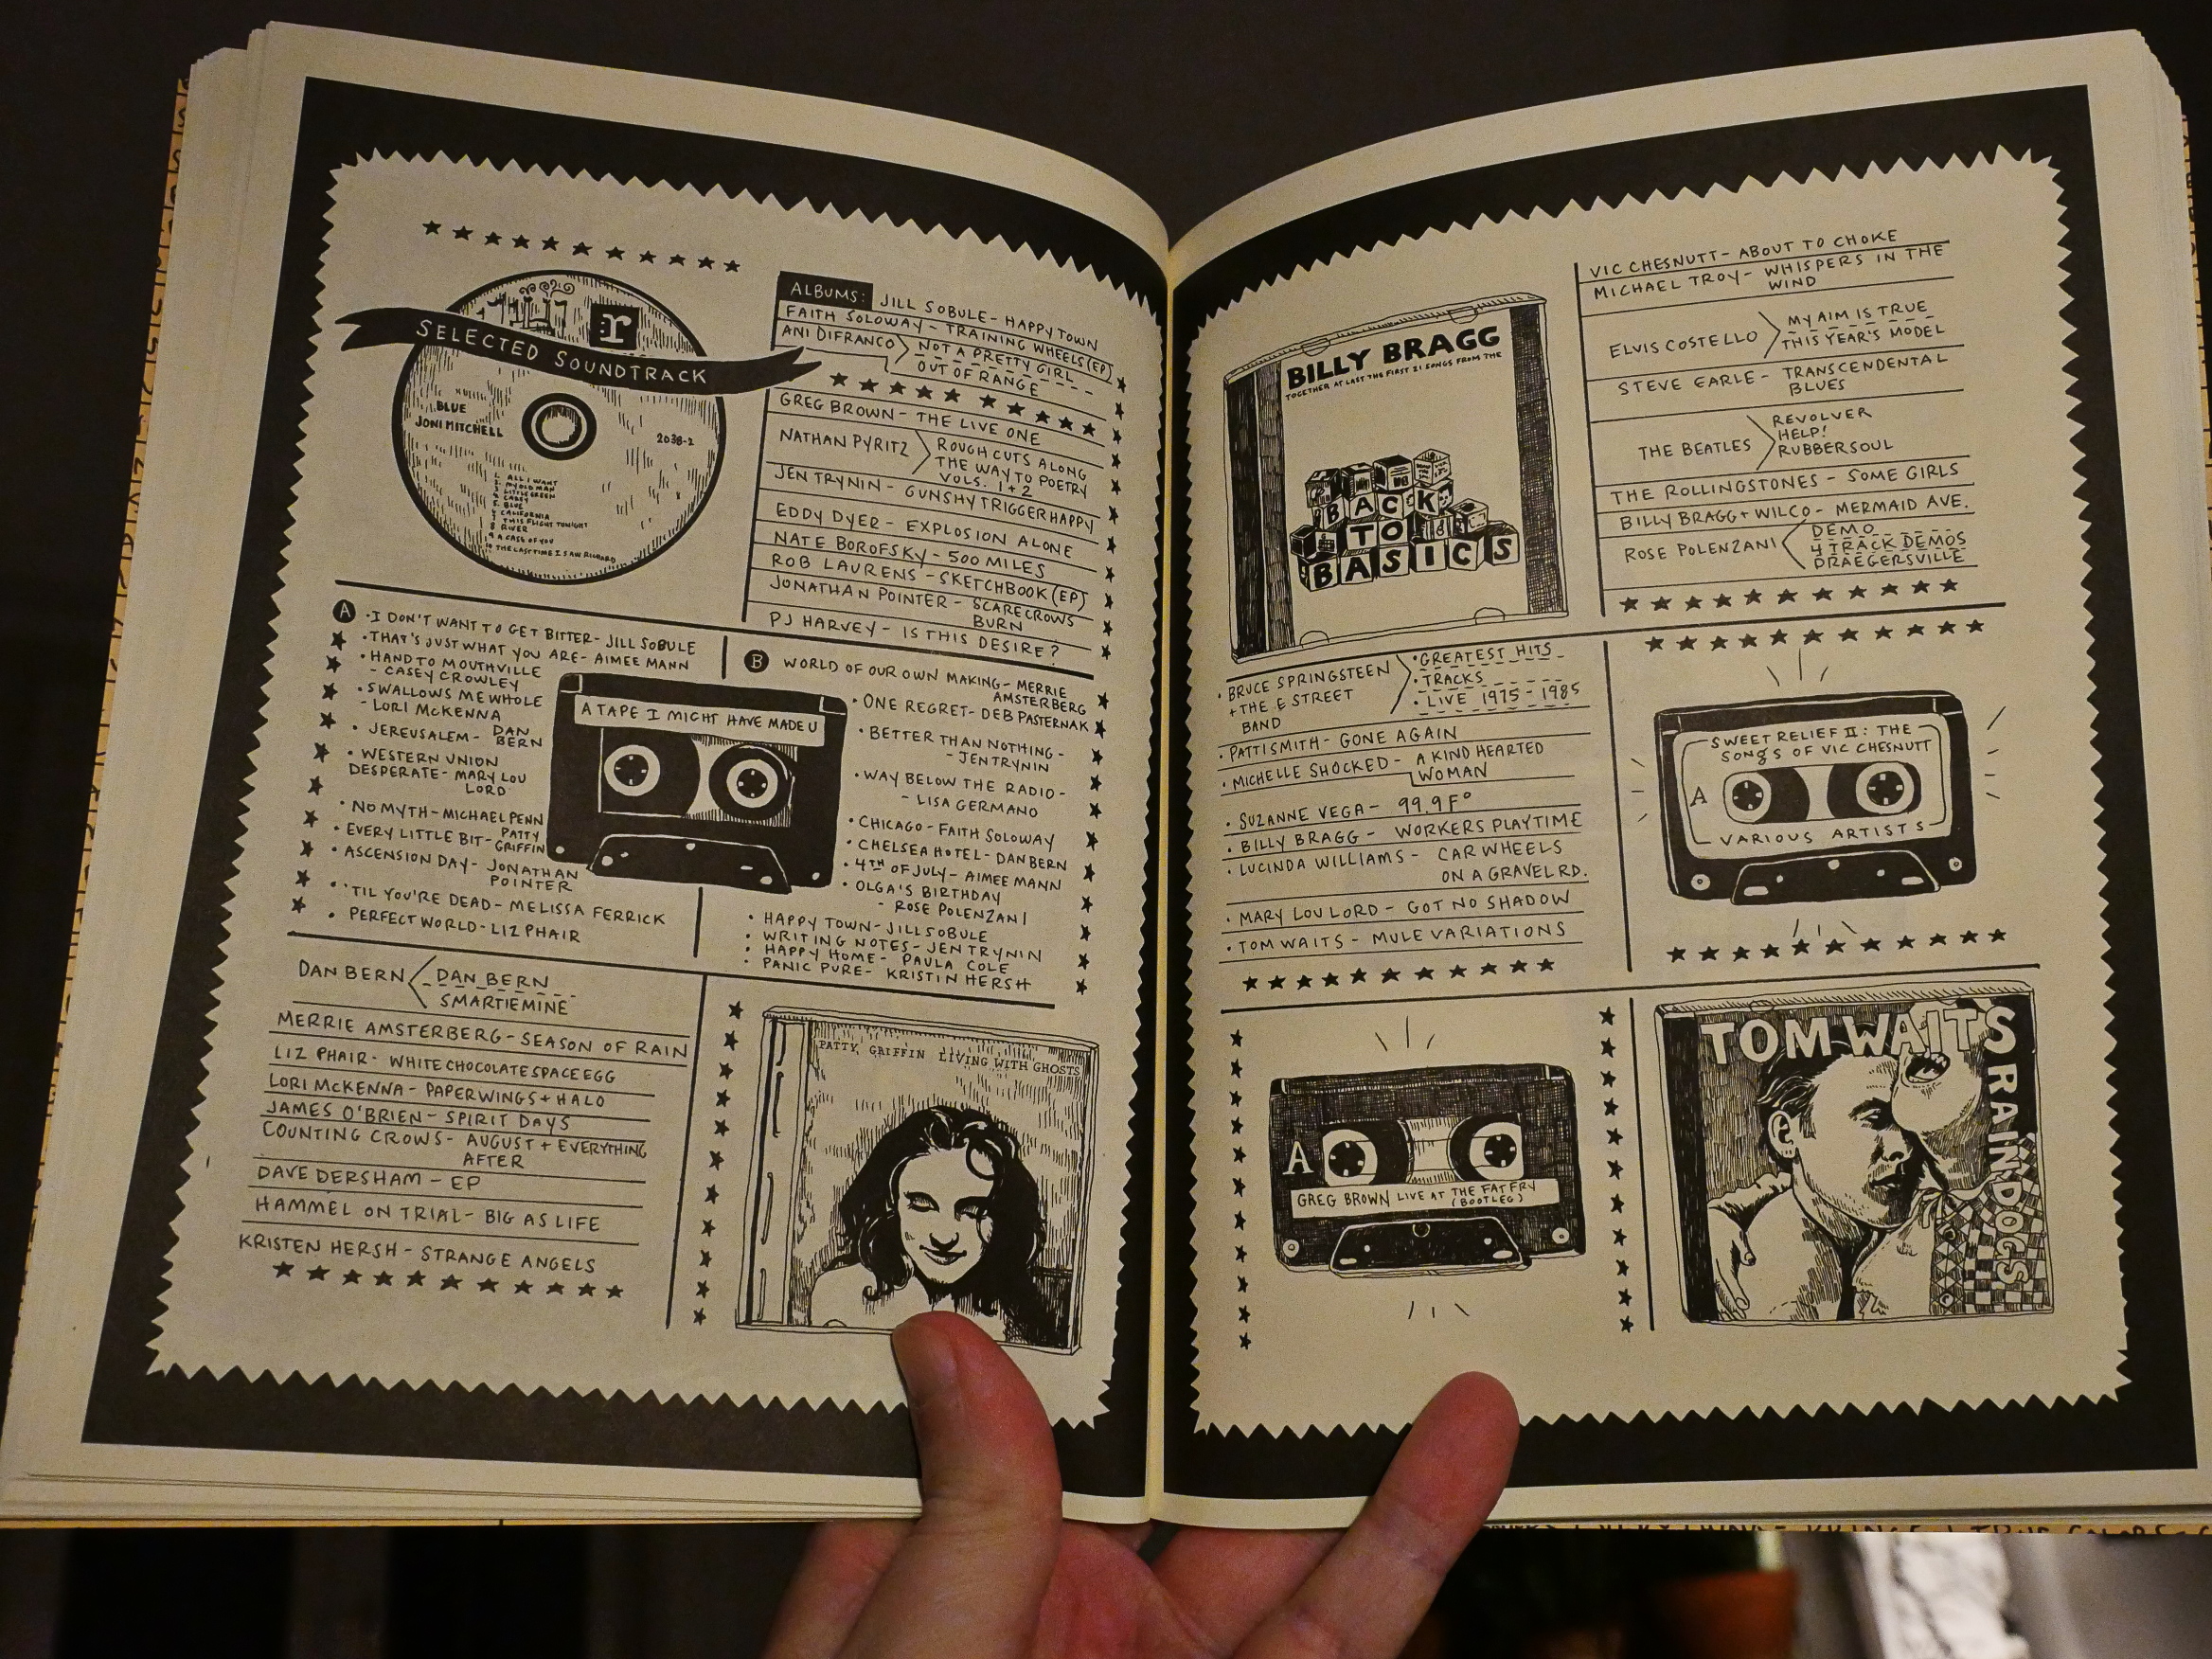 SELECTED SOUNDTRACK
BLUE
JONI MITCHELL
2038-2
1. ALL I WANT
2. MY OLD MAN
3. LITTLE GREEN
4. CAREY
5. BLUE
6. CALIFORNIA
7. THIS FLIGHT TONIGHT
8. RIVER
9. A CASE OF YOU
10. THE LAST TIME I SAW RICHARD
ALBUMS: JILL SOBULE - HAPPY TOWN
FAITH SOLOWAY - TRAINING WHEELS (EP)
ANI DIFRANCO
NOT A PRETTY GIRL
OUT OF RANGE
GREG BROWN - THE LIVE ONE
NATHAN PYRITZ
ROUGH CUTS ALONG
THE WAY TO POETRY
VOLS. 1 + 2
JEN TRYNIN - GUNSHY TRIGGER HAPPY
EDDY DYER - EXPLOSION ALONE
NATE BOROFSKY - 500 MILES
ROB LAURENS - SKETCHBOOK (EP)
JONATHAN POINTER - SCARECROWS
BURN
PJ HARVEY - IS THIS DESIRE?
A
• I DON'T WANT TO GET BITTER - JILL SOBULE
• THAT'S JUST WHAT YOU ARE - AIMEE MANN
• HAND TO MOUTHVILLE
- CASEY CROWLEY
• SWALLOWS ME WHOLE
- LORI McKENNA
• JEREUSALEM - DAN
BERN
• WESTERN UNION
DESPERATE - MARY LOU
LORD
• NO MYTH - MICHAEL PENN
• EVERY LITTLE BIT - PATTY
GRIFFIN
• ASCENSION DAY - JONATHAN
POINTER
• 'TIL YOU'RE DEAD - MELISSA FERRICK
• PERFECT WORLD - LIZ PHAIR
A TAPE I MIGHT HAVE MADE U
B
WORLD OF OUR OWN MAKING - MERRIE
AMSTERBERG
• ONE REGRET - DEB PASTERNAK
• BETTER THAN NOTHING -
- JEN TRYNIN
• WAY BELOW THE RADIO -
- LISA GERMANO
• CHICAGO - FAITH SOLOWAY
• CHELSEA HOTEL - DAN BERN
• 4TH OF JULY - AIMEE MANN
• OLGA'S BIRTHDAY
- ROSE POLENZANI
• HAPPY TOWN - JILL SOBULE
• WRITING NOTES - JEN TRYNIN
• HAPPY HOME - PAULA COLE
• PANIC PURE - KRISTIN HERSH
DAN BERN
DAN BERN
SMARTIEMINE
MERRIE AMSTERBERG - SEASON OF RAIN
LIZ PHAIR - WHITECHOCOLATESPACEEGG
LORI McKENNA - PAPERWINGS + HALO
JAMES O'BRIEN - SPIRIT DAYS
COUNTING CROWS - AUGUST + EVERYTHING
AFTER
DAVE DERSHAM - EP
HAMMEL ON TRIAL - BIG AS LIFE
KRISTEN HERSH - STRANGE ANGELS
PATTY GRIFFIN LIVING WITH GHOSTS
BILLY BRAGG
TOGETHER AT LAST THE FIRST 21 SONGS FROM THE
BACK
TO
BASICS
VIC CHESNUTT - ABOUT TO CHOKE
MICHAEL TROY - WHISPERS IN THE
WIND
ELVIS COSTELLO
MY AIM IS TRUE
THIS YEAR'S MODEL
STEVE EARLE - TRANSCENDENTAL
BLUES
THE BEATLES
REVOLVER
HELP!
RUBBERSOUL
THE ROLLINGSTONES - SOME GIRLS
BILLY BRAGG + WILCO - MERMAID AVE.
ROSE POLENZANI
DEMO
4 TRACK DEMOS
DRAEGERSVILLE
• BRUCE SPRINGSTEEN
+ THE E STREET
BAND
• GREATEST HITS
• TRACKS
• LIVE 1975 - 1985
• PATTI SMITH - GONE AGAIN
• MICHELLE SHOCKED - A KIND HEARTED
WOMAN
• SUZANNE VEGA - 99.9 F°
• BILLY BRAGG - WORKERS PLAYTIME
• LUCINDA WILLIAMS - CAR WHEELS
ON A GRAVEL RD.
• MARY LOU LORD - GOT NO SHADOW
• TOM WAITS - MULE VARIATIONS
SWEET RELIEF II: THE
SONGS OF VIC CHESNUTT
A
VARIOUS ARTISTS
A
GREG BROWN LIVE AT THE FAT FRY
(BOOTLEG)
TOM WAITS
RAIN DOGS